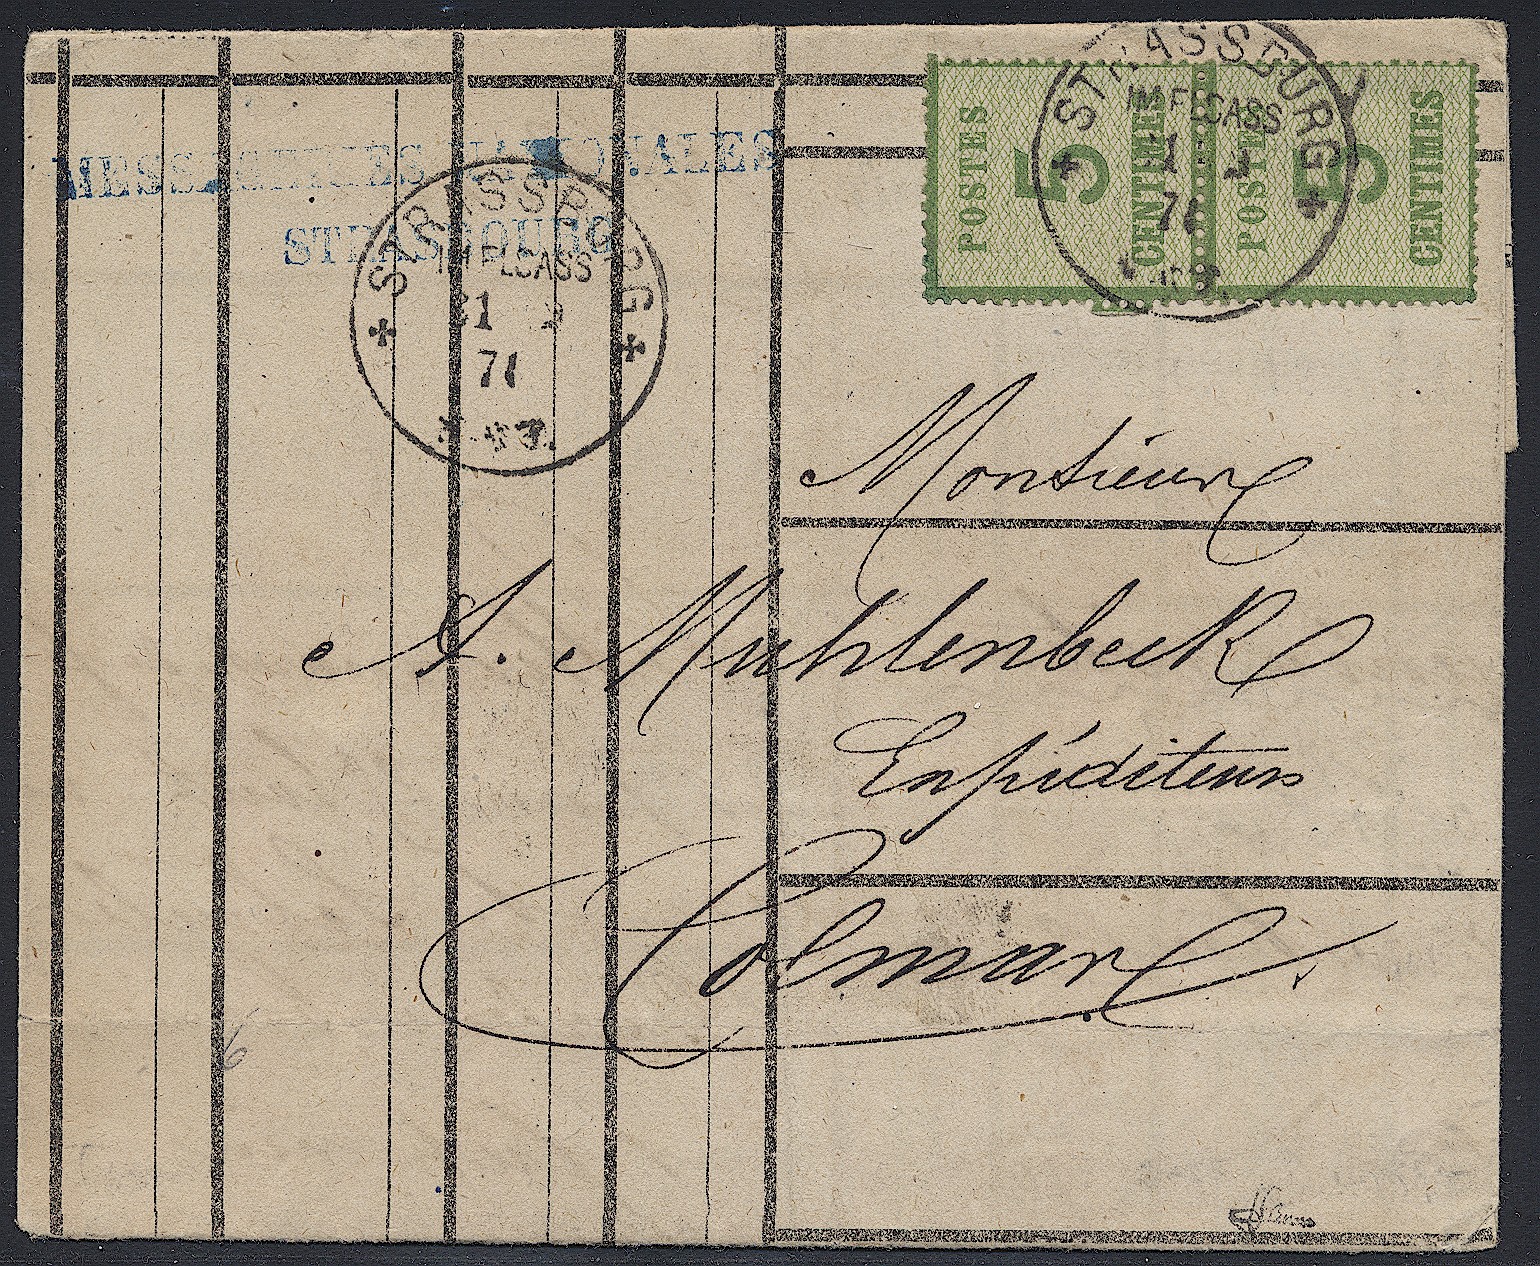 MESSAGERIES NATIONALES
STRASBOURG
STRASSBURG
IM ELSASS
21
71
POSTES
5
CENTIMES
POSTES
5
CENTIMES
STRASSBURG
IM ELSASS
71
Monsieur
A. Muhlenbeck
Expéditeur
Colmar